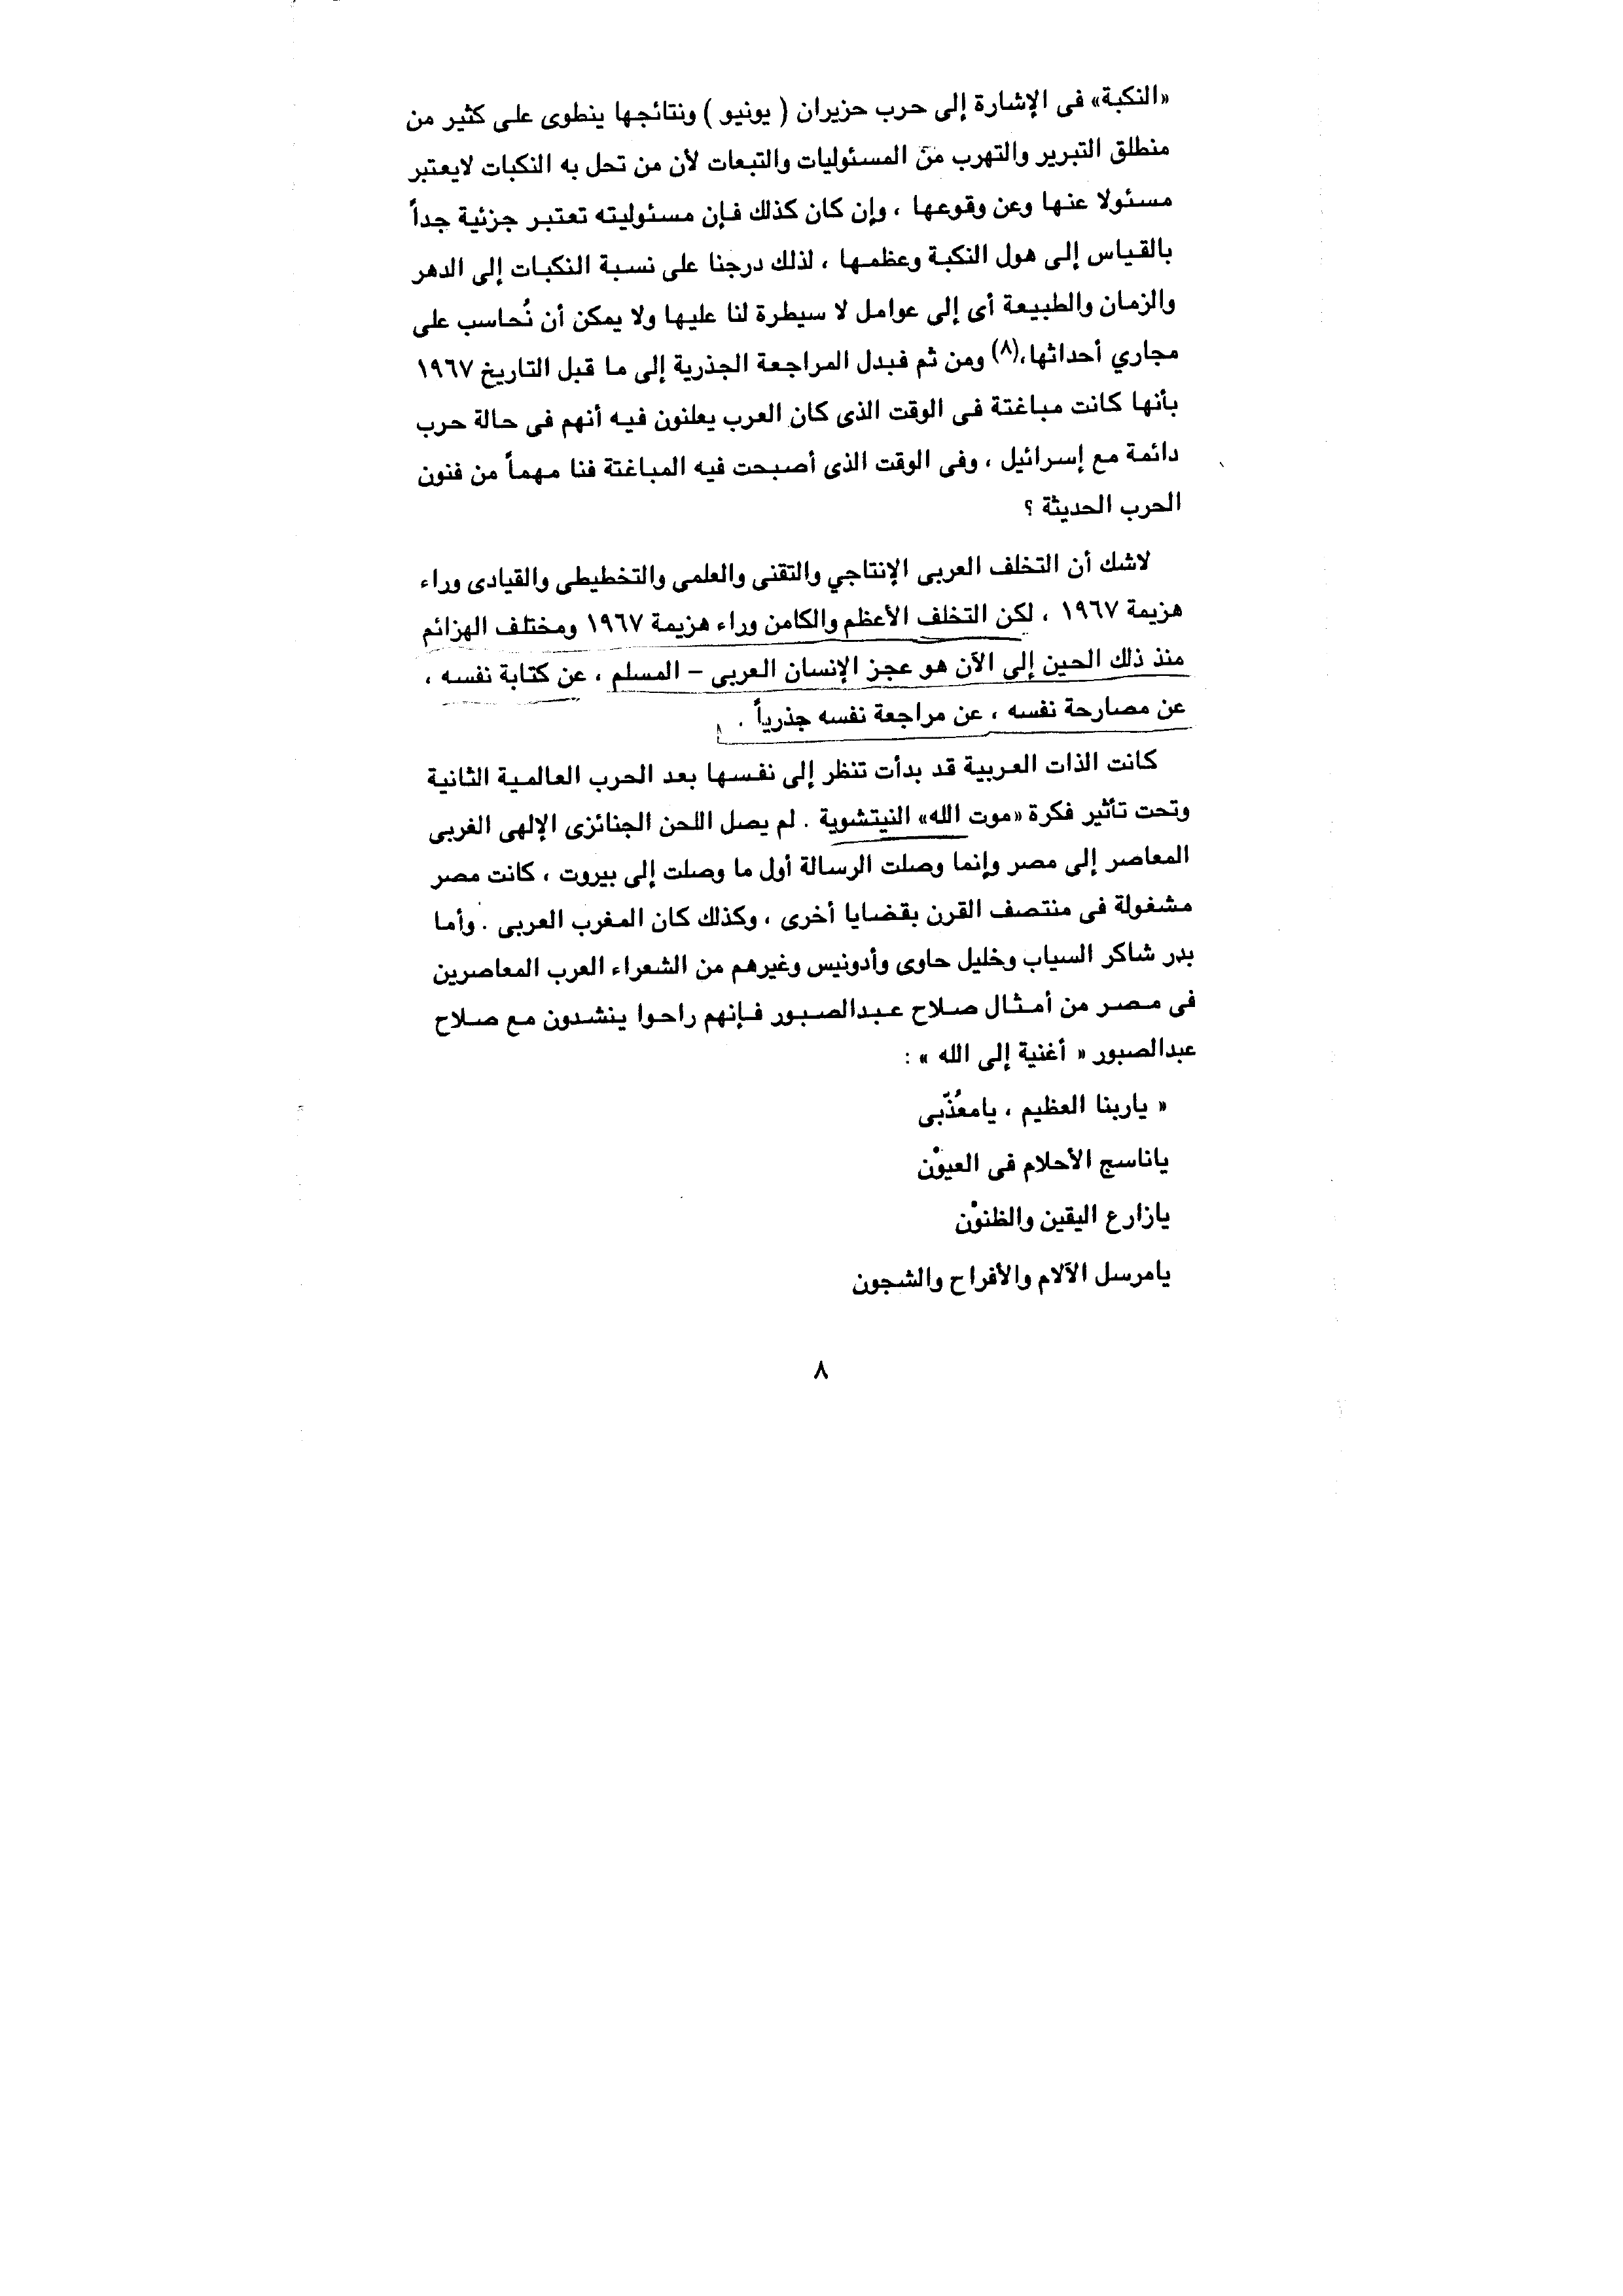 «النكبة» فى الإشارة إلى حرب حزيران ( يونيو ) ونتائجها ينطوى على كثير من
منطلق التبرير والتهرب من المسئوليات والتبعات لأن من تحل به النكبات لايعتبر
مسئولا عنها وعن وقوعها ، وإن كان كذلك فإن مسئوليته تعتبر جزئية جداً
بالقياس إلى هول النكبة وعظمها ، لذلك درجنا على نسبة النكبات إلى الدهر
والزمان والطبيعة أى إلى عوامل لا سيطرة لنا عليها ولا يمكن أن نُحاسب على
مجاري أحداثها،(٨) ومن ثم فبدل المراجعة الجذرية إلى ما قبل التاريخ ١٩٦٧
بأنها كانت مباغتة فى الوقت الذى كان العرب يعلنون فيه أنهم فى حالة حرب
دائمة مع إسرائيل ، وفى الوقت الذى أصبحت فيه المباغتة فنا مهماً من فنون
الحرب الحديثة ؟
لاشك أن التخلف العربى الإنتاجي والتقنى والعلمى والتخطيطى والقيادى وراء
هزيمة ١٩٦٧ ، لكن التخلف الأعظم والكامن وراء هزيمة ١٩٦٧ ومختلف الهزائم
منذ ذلك الحين إلى الآن هو عجز الإنسان العربى – المسلم ، عن كتابة نفسه ،
عن مصارحة نفسه ، عن مراجعة نفسه جذرياً .
كانت الذات العربية قد بدأت تنظر إلى نفسها بعد الحرب العالمية الثانية
وتحت تأثير فكرة «موت الله» النيتشوية . لم يصل اللحن الجنائزى الإلهى الغربى
المعاصر إلى مصر وإنما وصلت الرسالة أول ما وصلت إلى بيروت ، كانت مصر
مشغولة فى منتصف القرن بقضايا أخرى ، وكذلك كان المغرب العربى . وأما
بدر شاكر السياب وخليل حاوى وأدونيس وغيرهم من الشعراء العرب المعاصرين
فى مصر من أمثال صلاح عبدالصبور فإنهم راحوا ينشدون مع صلاح
عبدالصبور « أغنية إلى الله » :
« ياربنا العظيم ، يامعُذّبى
ياناسج الأحلام فى العيوْن
يازارع اليقين والظنوْن
يامرسل الآلام والأفراح والشجون
٨